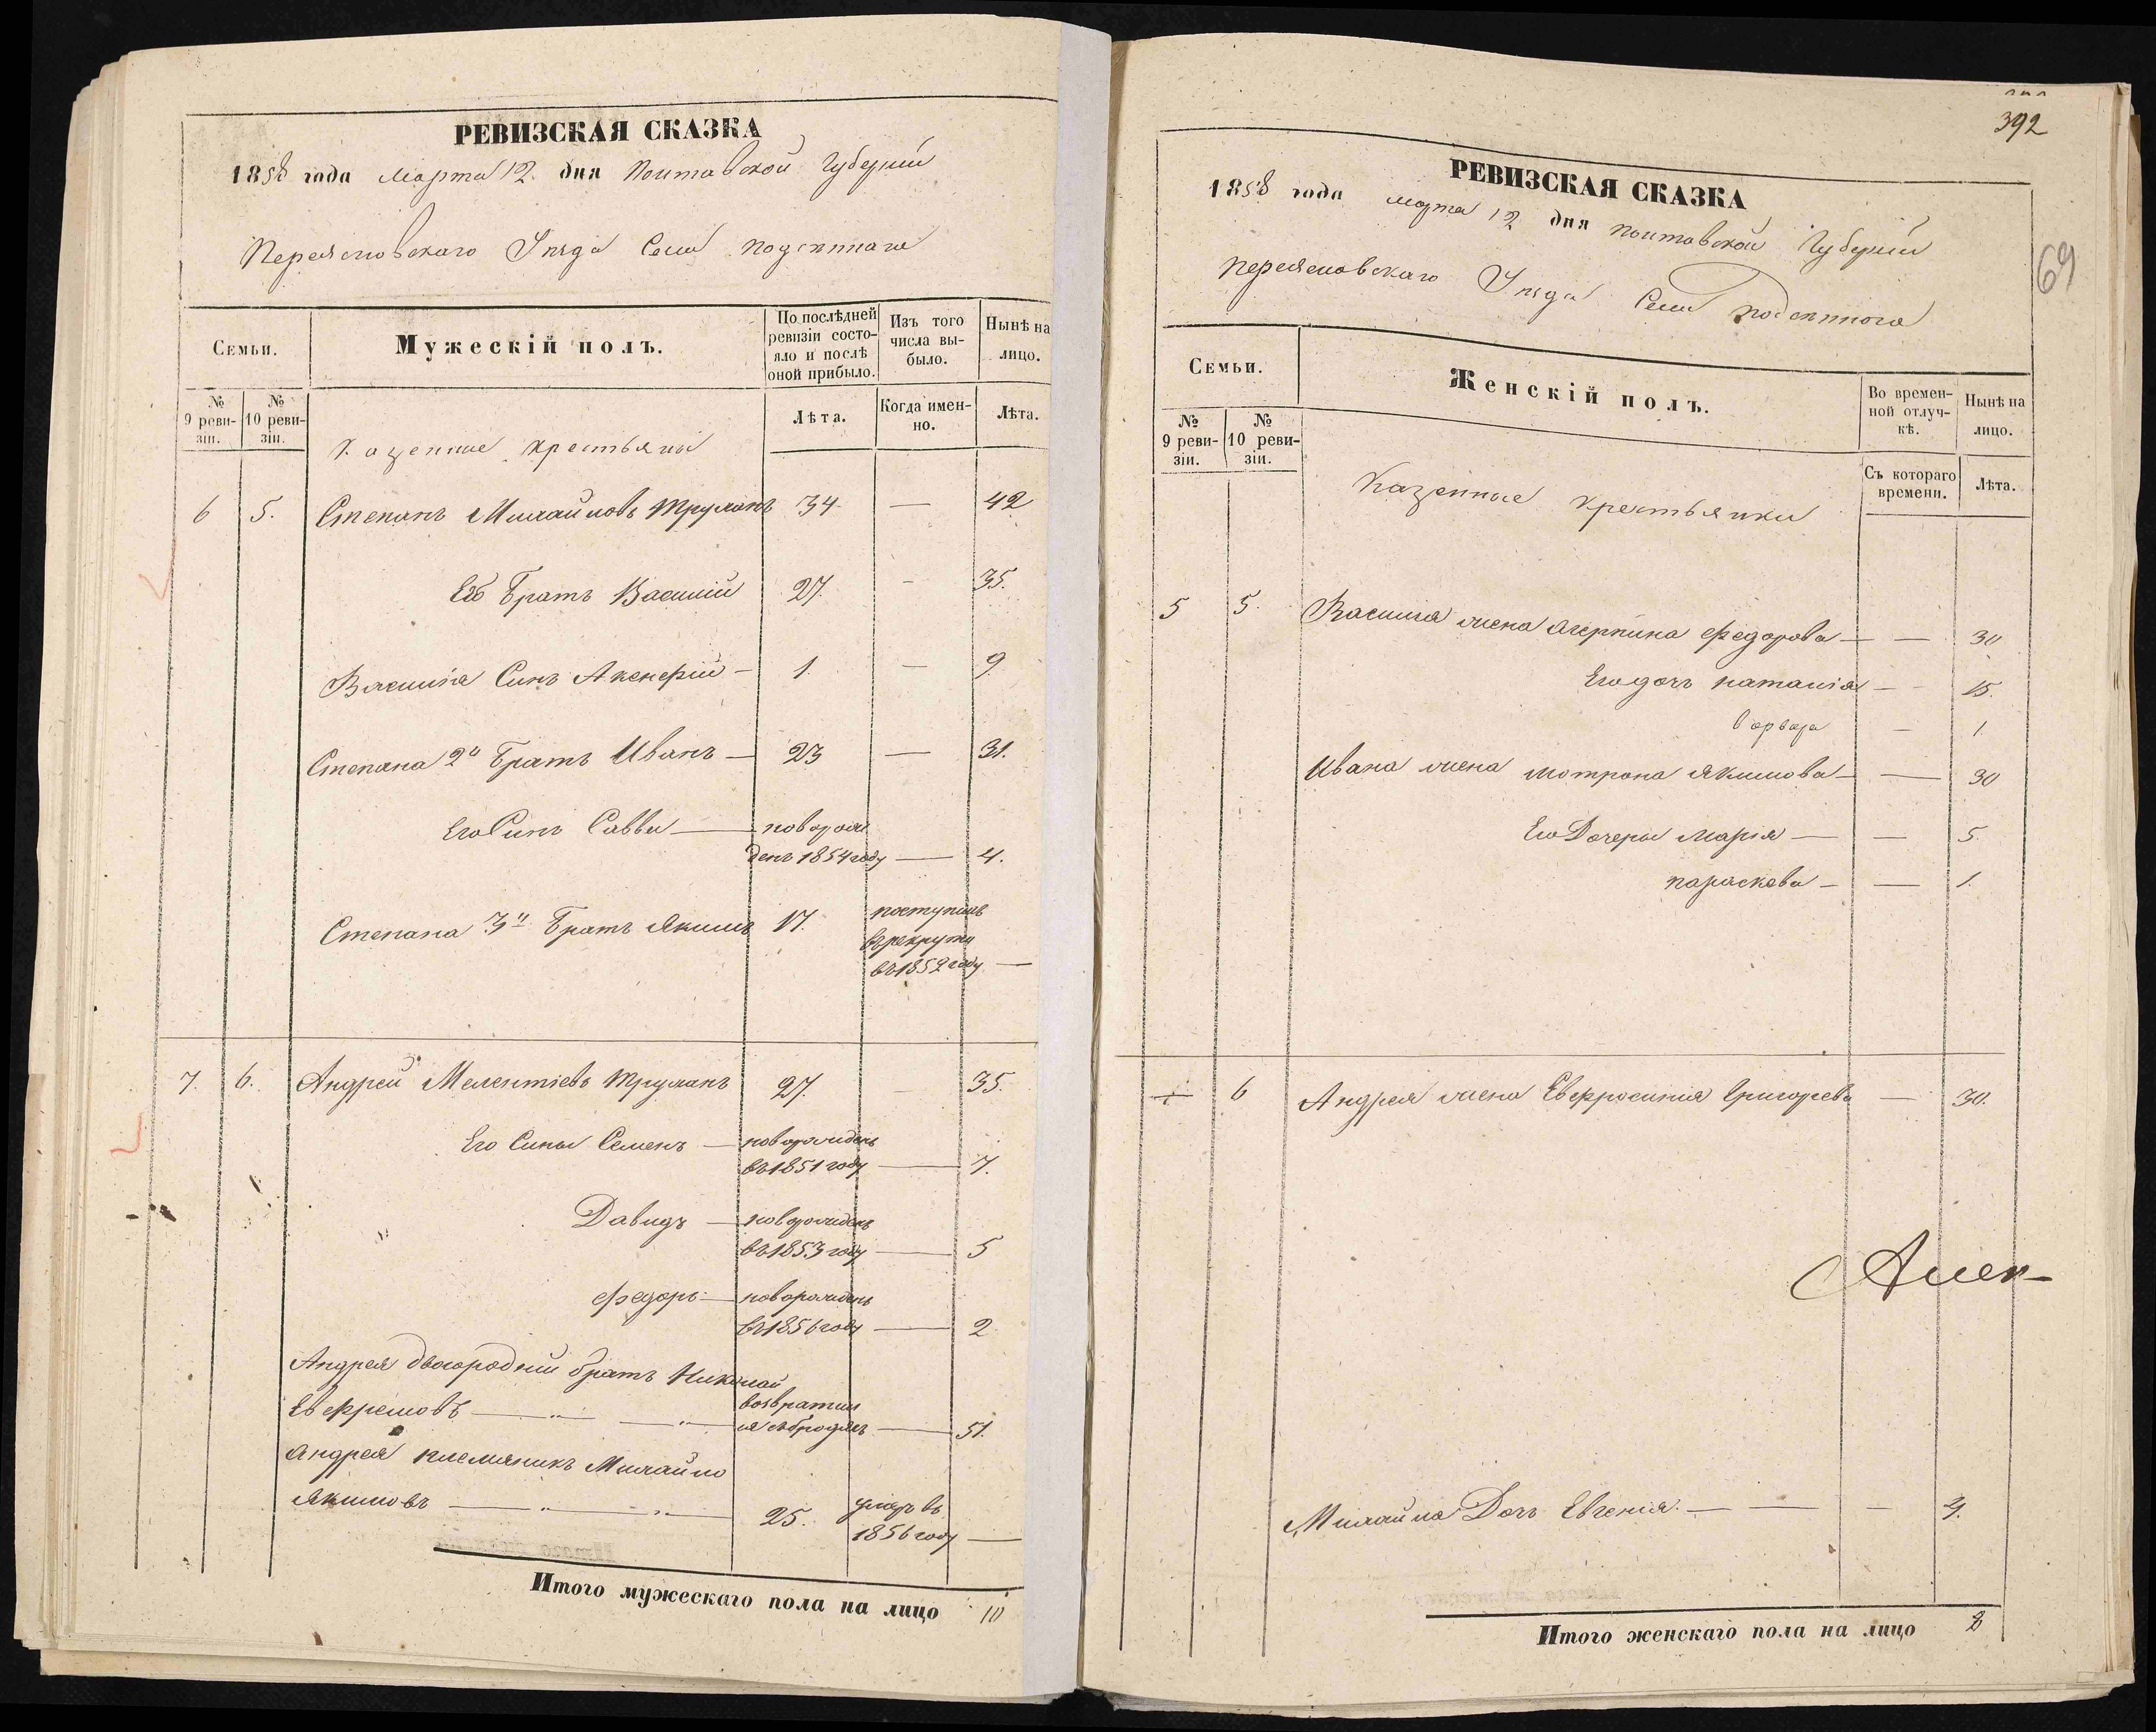 РЕВИЗСКАЯ СКАЗКА
1858 года Марта 12 дня Полтавской Губерніи
Переяславского Уезда Села
Семьи.
Мужескій полъ.
По послѣдней ревизіи состояло и послѣ оной прибыло.
Изъ того числа выбыло.
Нынѣ на лицо.
№ 9 ревизіи.
№ 10 ревизіи.
Лѣта.
Когда именно.
Лѣта.
Казенные крестьяны
6 5. Степанъ Михайловъ Труханъ 34 — 42
Его Братъ Василий 27. — 35.
Василія Синъ Аксенфій — 1. — 9
Степана 2й Братъ Иванъ — 23 — 31.
Его Синъ Савва — новорож
денъ 1854 году — 4.
Степана 3й Братъ Якимъ 17. поступилъ
въ рекруты
въ 1852 году —
7. 6. Андрей Мелентіевъ Труханъ 27. 35.
Его Сины Семенъ — новорожденъ
въ 1851 году — 7.
Давидъ — новорожденъ
въ 1853 году — 5
Федоръ — новорожденъ
въ 1856 году — 2
Андрея двоюродний братъ Николай
Евфремовъ — „ — „ — возвратил
ся 51.
Андрея племяникъ Михайло
Якимовъ — „ — „ — 25. умеръ въ
1856 году —
Итого мужескаго пола на лицо 10
392
69
РЕВИЗСКАЯ СКАЗКА
1858 года марта 12 дня полтавской Губерніи
переяславского Уезда Села
Семьи.
Женскій полъ.
Во временной отлучкѣ.
Нынѣ на лицо.
№ 9 ревизіи.
№ 10 ревизіи.
Съ котораго времени.
Лѣта.
Казенные крестьянки
5 5. Василия жена Агерпина Федорова — — 30
Его дочь наталія — — 15.
варвара — 1
Ивана жена мотрона Якимова — — 30
Его Дочери Марія — — 5.
параскева — — 1.
7 6 Андрея жена Евфросиния Григорева — 30.
Алек-
Михайла Дочь Евгенія. — — — 4.
Итого женскаго пола на лицо 8